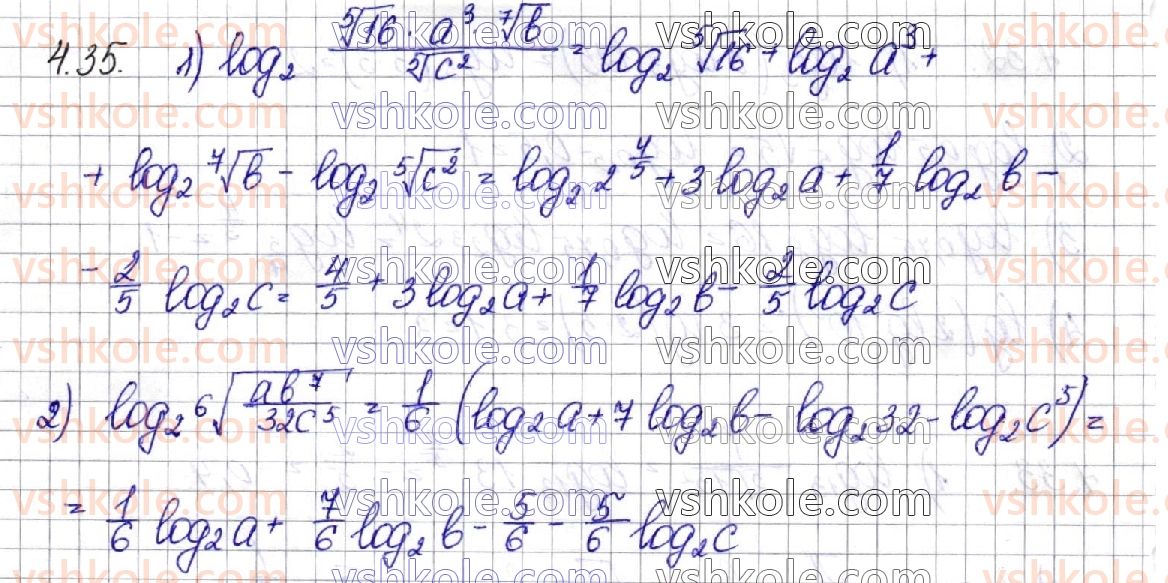 4.35. 1) log₂ (⁵√16 · a³ · ⁷√b)/(⁵√c²) = log₂ ⁵√16 + log₂ a³ +
+ log₂ ⁷√b - log₂ ⁵√c² = log₂ 2^(4/5) + 3 log₂ a + 1/7 log₂ b -
- 2/5 log₂ c = 4/5 + 3 log₂ a + 1/7 log₂ b - 2/5 log₂ c
2) log₂ ⁶√(ab⁷/32c⁵) = 1/6 (log₂ a + 7 log₂ b - log₂ 32 - log₂ c⁵) =
= 1/6 log₂ a + 7/6 log₂ b - 5/6 - 5/6 log₂ c
vshkole.com